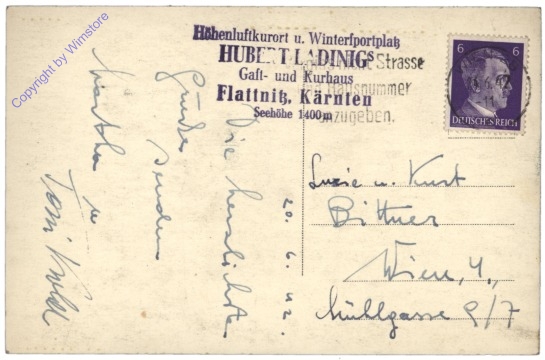 Copyright by Wimstore
Höhenluftkurort u. Wintersportplatz
HUBERT LADINIGs
Gast- und Kurhaus
Flattnitz, Kärnten
Seehöhe 1400m
Strasse
Hausnummer
anzugeben.
6 6
DEUTSCHES REICH
42
20.6.42.
Die herzlichsten
Grüße senden
Martha u
Toni
Luzie u. Kurt
Bittner
Wien, 4.,
Mühlgasse 9/7